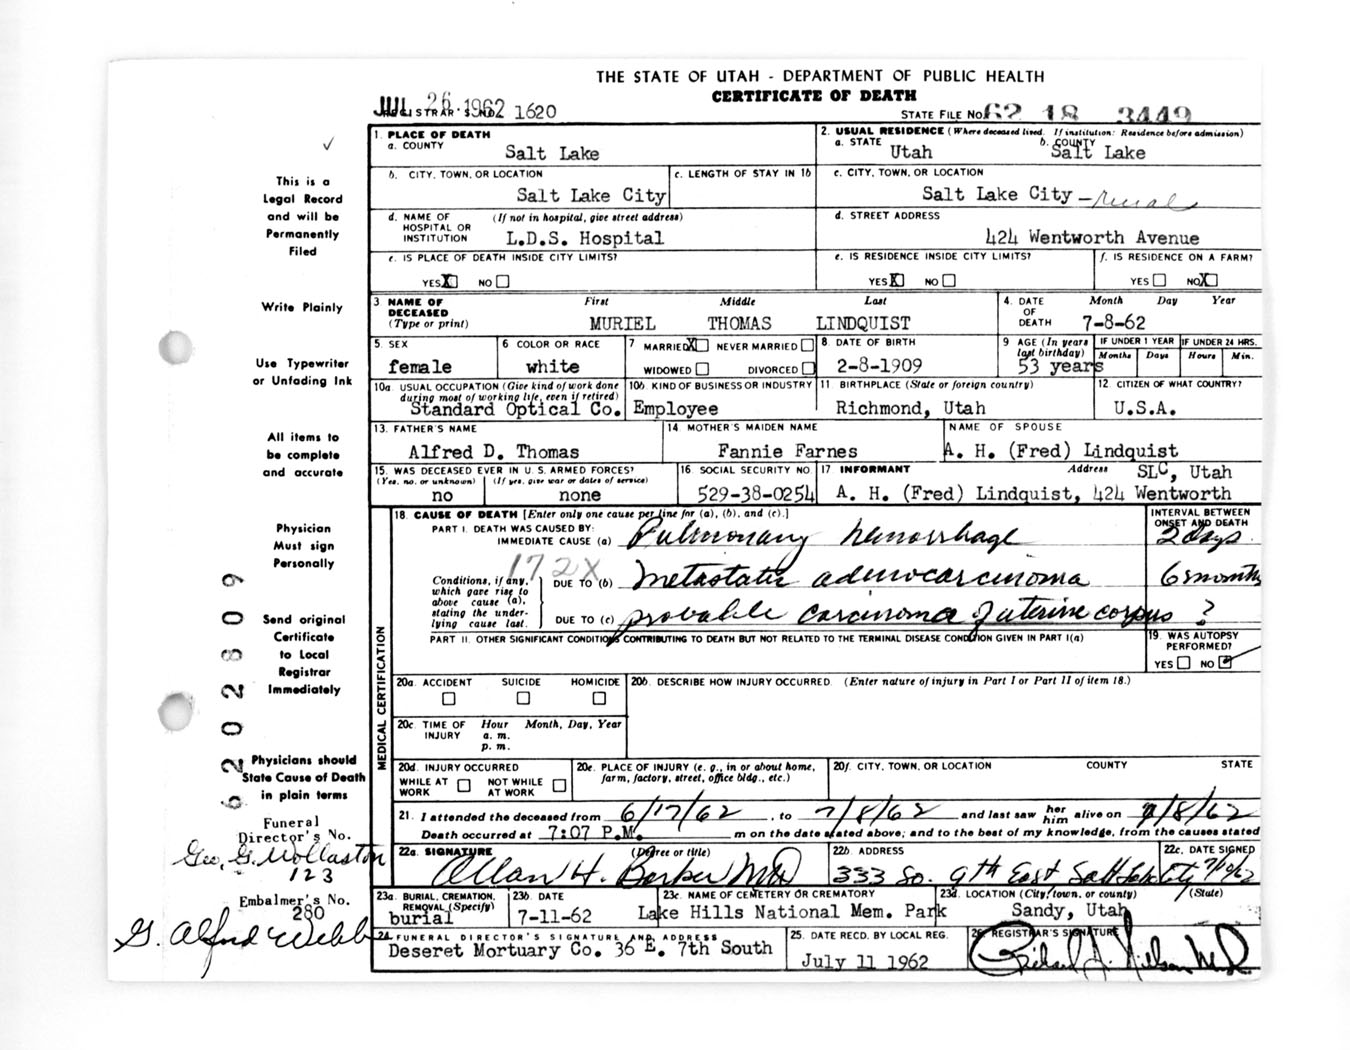 THE STATE OF UTAH - DEPARTMENT OF PUBLIC HEALTH
CERTIFICATE OF DEATH
JUL 26 1962 1620
STATE FILE NO. 62 18 3449
1. PLACE OF DEATH
a. COUNTY
Salt Lake
2. USUAL RESIDENCE (Where deceased lived. If institution: Residence before admission)
a. STATE
Utah
b. COUNTY
Salt Lake
b. CITY, TOWN, OR LOCATION
Salt Lake City
c. LENGTH OF STAY IN 1b
c. CITY, TOWN, OR LOCATION
Salt Lake City - rural
d. NAME OF HOSPITAL OR INSTITUTION
(If not in hospital, give street address)
L.D.S. Hospital
d. STREET ADDRESS
424 Wentworth Avenue
e. IS PLACE OF DEATH INSIDE CITY LIMITS?
YES X NO
e. IS RESIDENCE INSIDE CITY LIMITS?
YES X NO
f. IS RESIDENCE ON A FARM?
YES NO X
3 NAME OF DECEASED
(Type or print)
First Middle Last
MURIEL THOMAS LINDQUIST
4. DATE OF DEATH
Month Day Year
7-8-62
5. SEX
female
6 COLOR OR RACE
white
7 MARRIED X NEVER MARRIED
WIDOWED DIVORCED
8 DATE OF BIRTH
2-8-1909
9 AGE (In years last birthday)
53 years
IF UNDER 1 YEAR
Months Days
IF UNDER 24 HRS.
Hours Min.
10a. USUAL OCCUPATION (Give kind of work done during most of working life, even if retired)
Standard Optical Co.
10b. KIND OF BUSINESS OR INDUSTRY
Employee
11 BIRTHPLACE (State or foreign country)
Richmond, Utah
12 CITIZEN OF WHAT COUNTRY?
U.S.A.
13. FATHER'S NAME
Alfred D. Thomas
14 MOTHER'S MAIDEN NAME
Fannie Farnes
NAME OF SPOUSE
A. H. (Fred) Lindquist
15. WAS DECEASED EVER IN U.S. ARMED FORCES?
(Yes, no, or unknown) (If yes, give war or dates of service)
no none
16 SOCIAL SECURITY NO.
529-38-0254
17 INFORMANT Address
SLC, Utah
A. H. (Fred) Lindquist, 424 Wentworth
MEDICAL CERTIFICATION
18. CAUSE OF DEATH [Enter only one cause per line for (a), (b), and (c).]
INTERVAL BETWEEN ONSET AND DEATH
PART I. DEATH WAS CAUSED BY:
IMMEDIATE CAUSE (a) Pulmonary hemorrhage 2 days.
172X
Conditions, if any, which gave rise to above cause (a), stating the underlying cause last.
DUE TO (b) metastatic adenocarcinoma 6 months
DUE TO (c) probable carcinoma of uterine corpus ?
PART II. OTHER SIGNIFICANT CONDITIONS CONTRIBUTING TO DEATH BUT NOT RELATED TO THE TERMINAL DISEASE CONDITION GIVEN IN PART I(a)
19. WAS AUTOPSY PERFORMED?
YES NO
20a. ACCIDENT SUICIDE HOMICIDE
20b. DESCRIBE HOW INJURY OCCURRED. (Enter nature of injury in Part I or Part II of item 18.)
20c. TIME OF INJURY
Hour Month, Day, Year
a. m.
p. m.
20d. INJURY OCCURRED
WHILE AT WORK NOT WHILE AT WORK
20e. PLACE OF INJURY (e. g., in or about home, farm, factory, street, office bldg., etc.)
20f. CITY, TOWN, OR LOCATION COUNTY STATE
21. I attended the deceased from 6/17/62, to 7/8/62 and last saw her him alive on 7/8/62
Death occurred at 7:07 P.M. m on the date stated above; and to the best of my knowledge, from the causes stated
22a. SIGNATURE (Degree or title)
Allan H. Barker MD
22b. ADDRESS
333 So. 9th East Salt Lake City
22c. DATE SIGNED
7/10/62
23a. BURIAL, CREMATION, REMOVAL (Specify)
burial
23b. DATE
7-11-62
23c. NAME OF CEMETERY OR CREMATORY
Lake Hills National Mem. Park
23d. LOCATION (City, town, or county) (State)
Sandy, Utah
24. FUNERAL DIRECTOR'S SIGNATURE AND ADDRESS
Deseret Mortuary Co. 36 E. 7th South
25. DATE RECD. BY LOCAL REG.
July 11 1962
26. REGISTRAR'S SIGNATURE
This is a
Legal Record
and will be
Permanently
Filed
Write Plainly
Use Typewriter
or Unfading Ink
All items to
be complete
and accurate
Physician
Must sign
Personally
Send original
Certificate
to Local
Registrar
Immediately
Physicians should
State Cause of Death
in plain terms
Funeral
Director's No.
Geo. G. Wollaston
123
Embalmer's No.
280
G. Alfred Webb